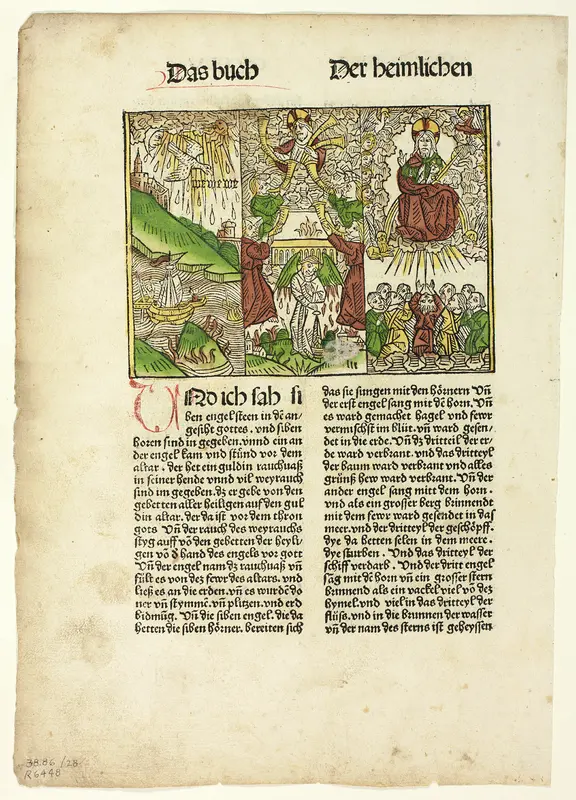 Das buch
Der heimlichen
we we we
UNd ich sah si
ben engel steen in dē an⸗
gesiht gottes . vnd siben
horen sind in gegeben . vnnd ein an
der engel kam vnd stūnd vor dem
altar . der het ein guldin rauchuaß
in seiner hende vnnd vil weyrauch
sind im gegeben . dz er gebe von den
gebetten aller heiligen auff den gul
din altar . der da ist vor dem thron
gots Vnd der rauch des weyrauchs
styg auff vō den gebetten der heyli⸗
gen vō d hand des engels vor gott
Vn̄ der engel nam dz rauchuaß vn̄
fült es von dez fewr des altars . vnd
ließ es an die erden . vn̄ es wurdē do
ner vn̄ stymmē . vn̄ plitzen . vnd erd
bidmūg . Vn̄ die siben engel . die da
hetten die siben hörner . bereiten sich
das sie sungen mit den hörnern Vn̄
der erst engel sang mit dē horn . Vn̄
es ward gemachet hagel vnd fewr
vermischst im blüt . vn̄ ward gesen⸗
det in die erde . Vn̄ dz dritteil der er⸗
de ward verbrant . vnd das dritteyl
der baum ward verbrant vnd alles
grünß hew ward verbrant . Vn̄ der
ander engel sang mitt dem horn .
vnd als ein grosser berg brinnendt
mit dem fewr ward gesendet in das
meer . vnd der dritteyl der geschöpff .
dye da hetten selen in dem meere .
dye sturben . Vnd das dritteyl der
schiff verdarb . Vnd der dritt engel
sāg mit dē horn vn̄ ein grosser stern
brinnend als ein vackel viel vō dez
hymel . vnd viel in das dritteyl der
flüss . vnd in die brunnen der wasser
vn̄ der nam des sterns ist geheyssen
38.86 / 28
R6448